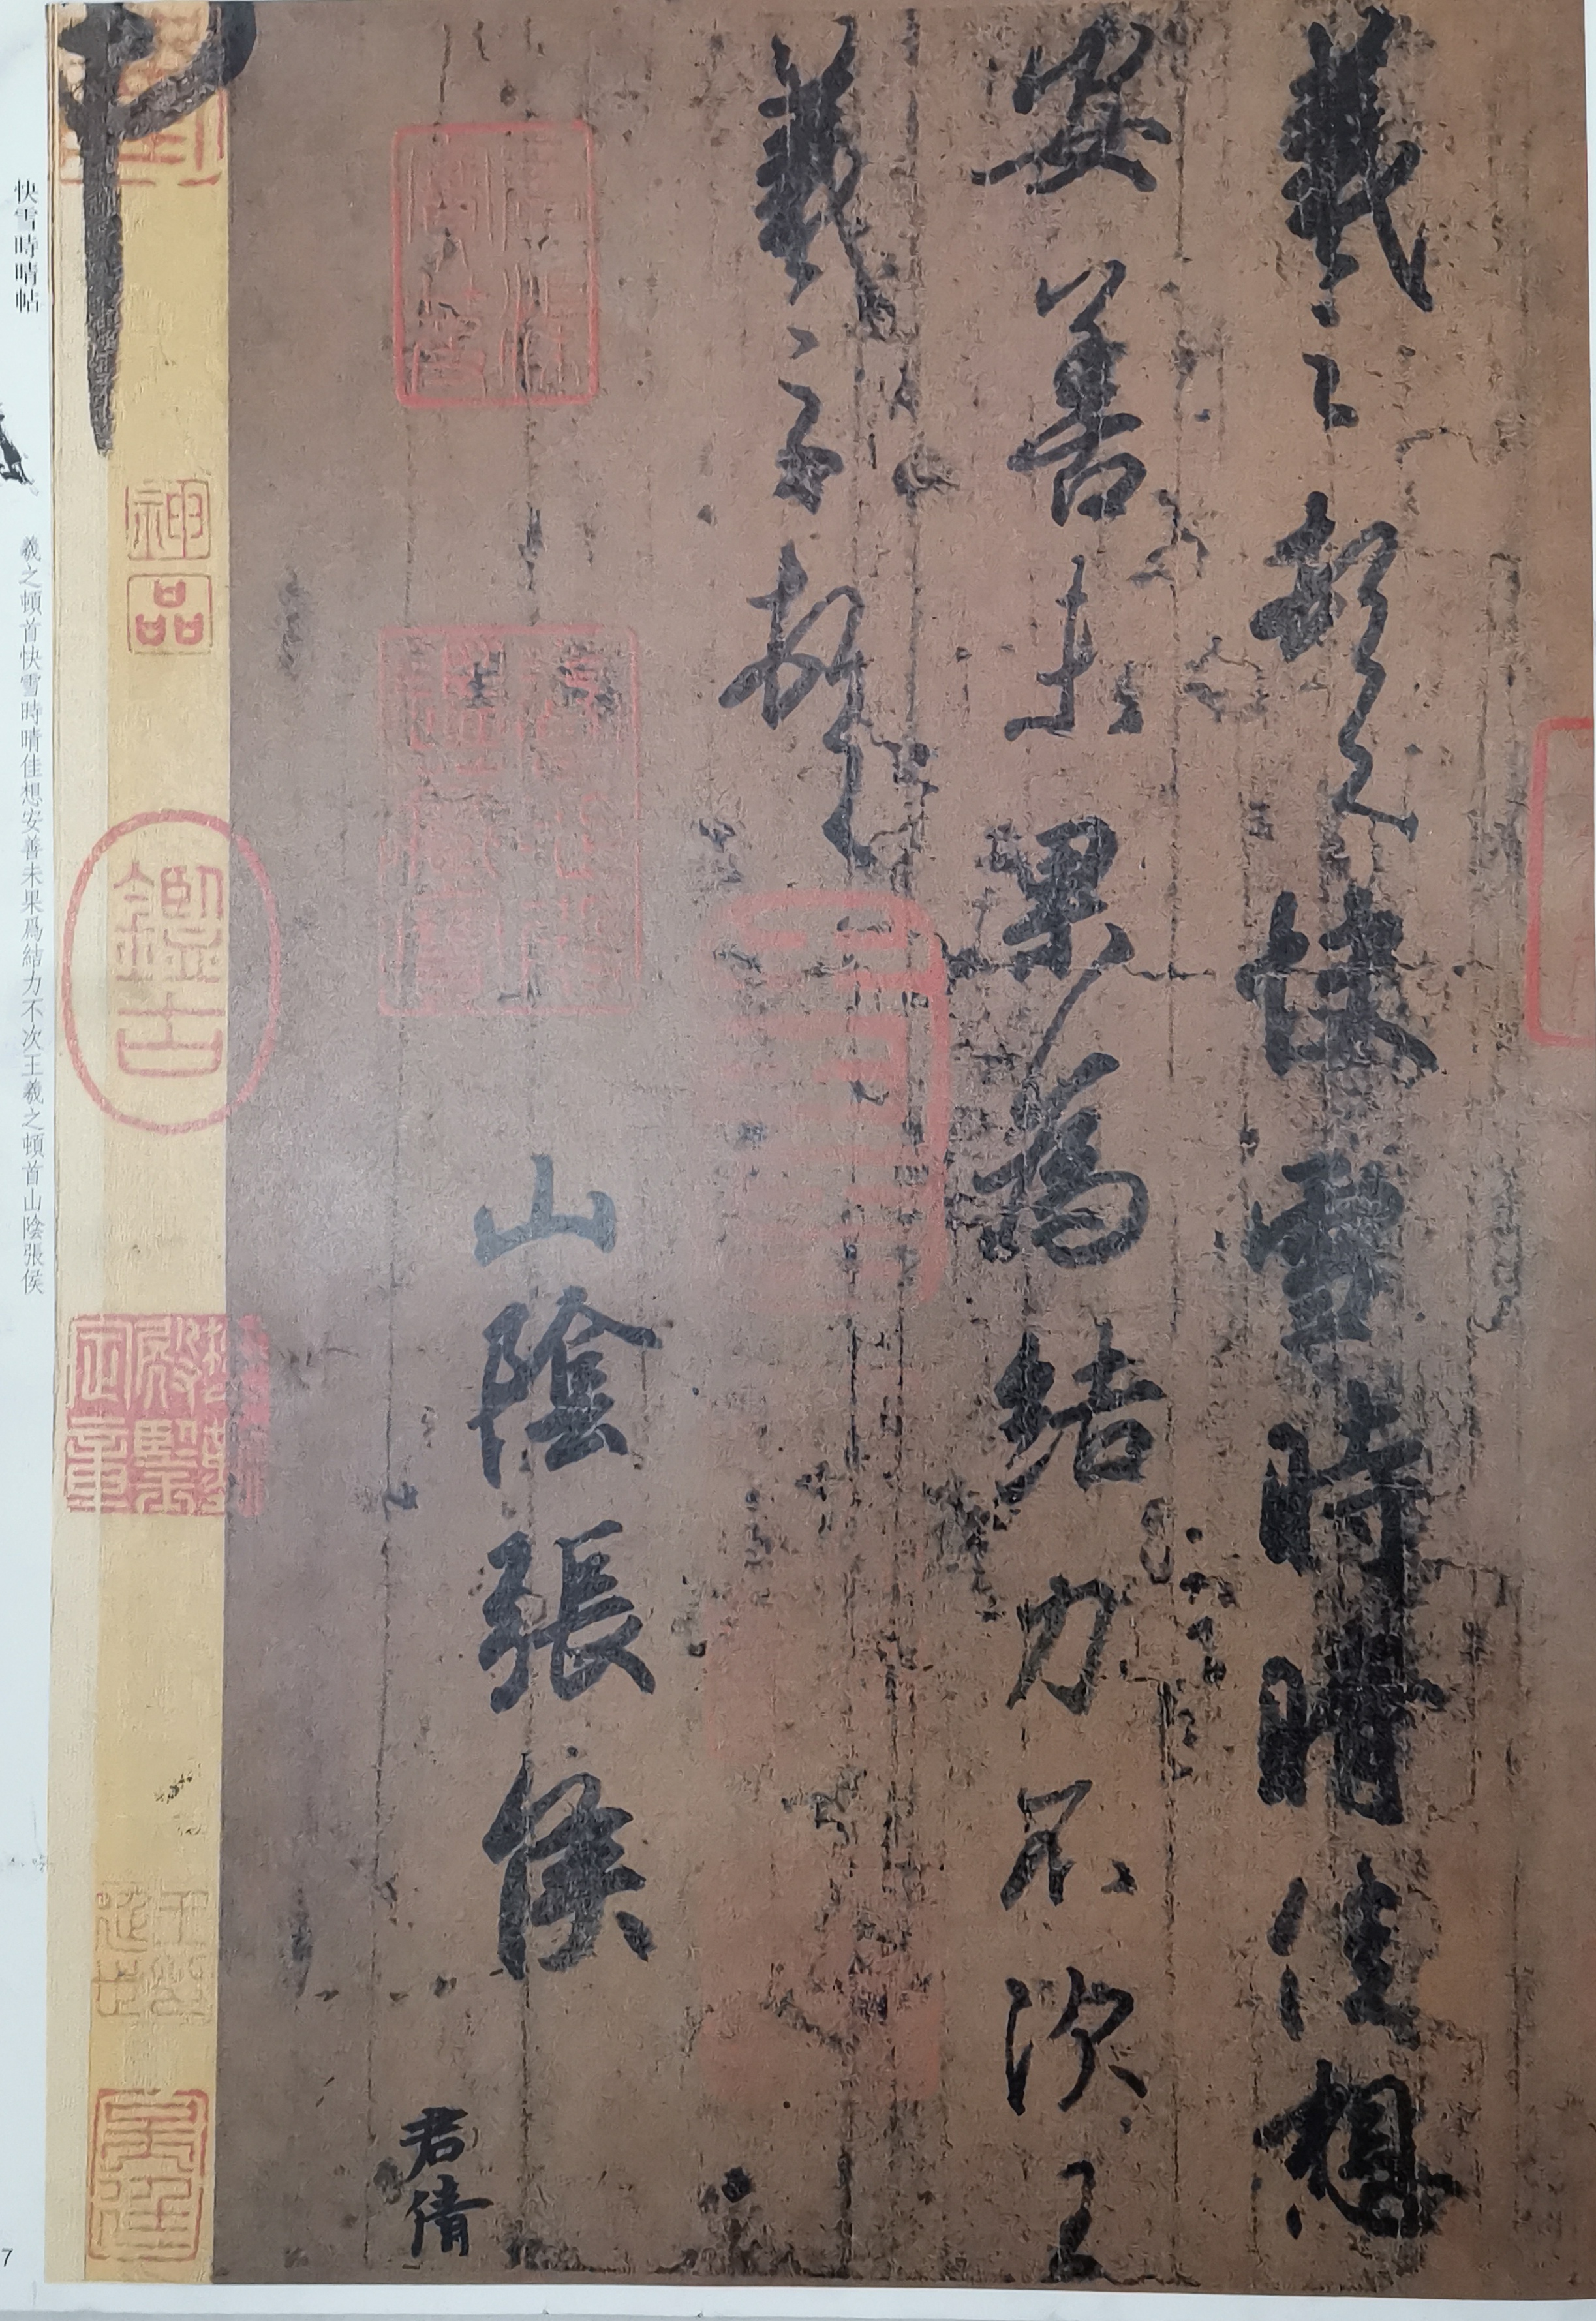 羲之頓首快雪時晴佳想
安善未果為結力不次王
羲之頓首
山陰張侯
君倩
神品
鑑古
快雪時晴帖
羲之頓首快雪時晴佳想安善未果爲結力不次王羲之頓首山陰張侯
7